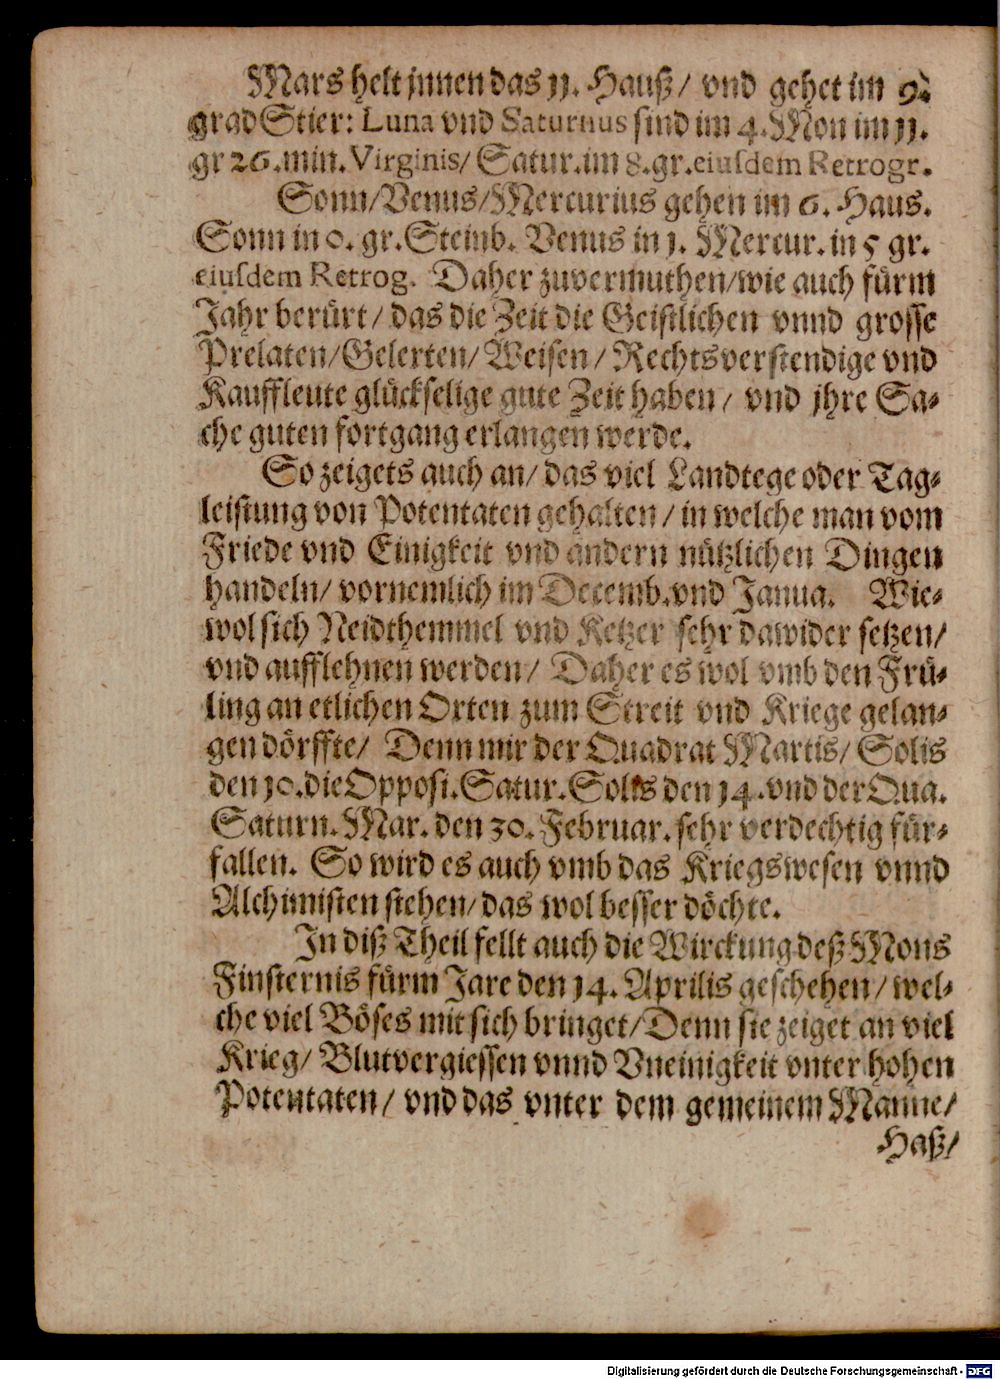 Mars helt jnnen das 11. Hauß / vnd gehet im 9.
grad Stier: Luna vnd Saturnus sind im 4. Mon im 11.
gr 26. min. Virginis/ Satur. im 8. gr. eiusdem Retrogr.
Sonn/Venus/Mercurius gehen im 6. Haus.
Sonn in 0. gr. Steinb. Venus in 1. Mercur. in 5 gr.
eiusdem Retrog. Daher zuvermuthen/wie auch fürm
Jahr berürt/ das die Zeit die Geistlichen vnnd grosse
Prelaten/Gelerten/Weisen/Rechtsverstendige vnd
Kauffleute glückselige gute Zeit haben/ vnd jhre Sa-
che guten fortgang erlangen werde.
So zeigets auch an/ das viel Landtege oder Tag-
leistung von Potentaten gehalten/ in welche man vom
Friede vnd Einigkeit vnd andern nützlichen Dingen
handeln/ vornemlich im Decemb. vnd Janua. Wie-
wol sich Neidthemmel vnd Ketzer sehr dawider setzen/
vnd aufflehnen werden/ Daher es wol vmb den Frü-
ling an etlichen Orten zum Streit vnd Kriege gelan-
gen dörffte/ Denn mir der Quadrat Martis/ Solis
den 10. die Opposi. Satur. Solis den 14. vnd der Qua.
Saturn. Mar. den 30. Februar. sehr verdechtig für-
fallen. So wird es auch vmb das Kriegswesen vnnd
Alchimisten stehen/ das wol besser döchte.
In diß Theil fellt auch die Wirckung deß Mons
Finsternis fürm Jare den 14. Aprilis geschehen/ wel-
che viel Böses mit sich bringet/Denn sie zeiget an viel
Krieg/ Blutvergiessen vnnd Vneinigkeit vnter hohen
Potentaten/ vnd das vnter dem gemeinem Manne/
Haß/
Digitalisierung gefördert durch die Deutsche Forschungsgemeinschaft - DFG